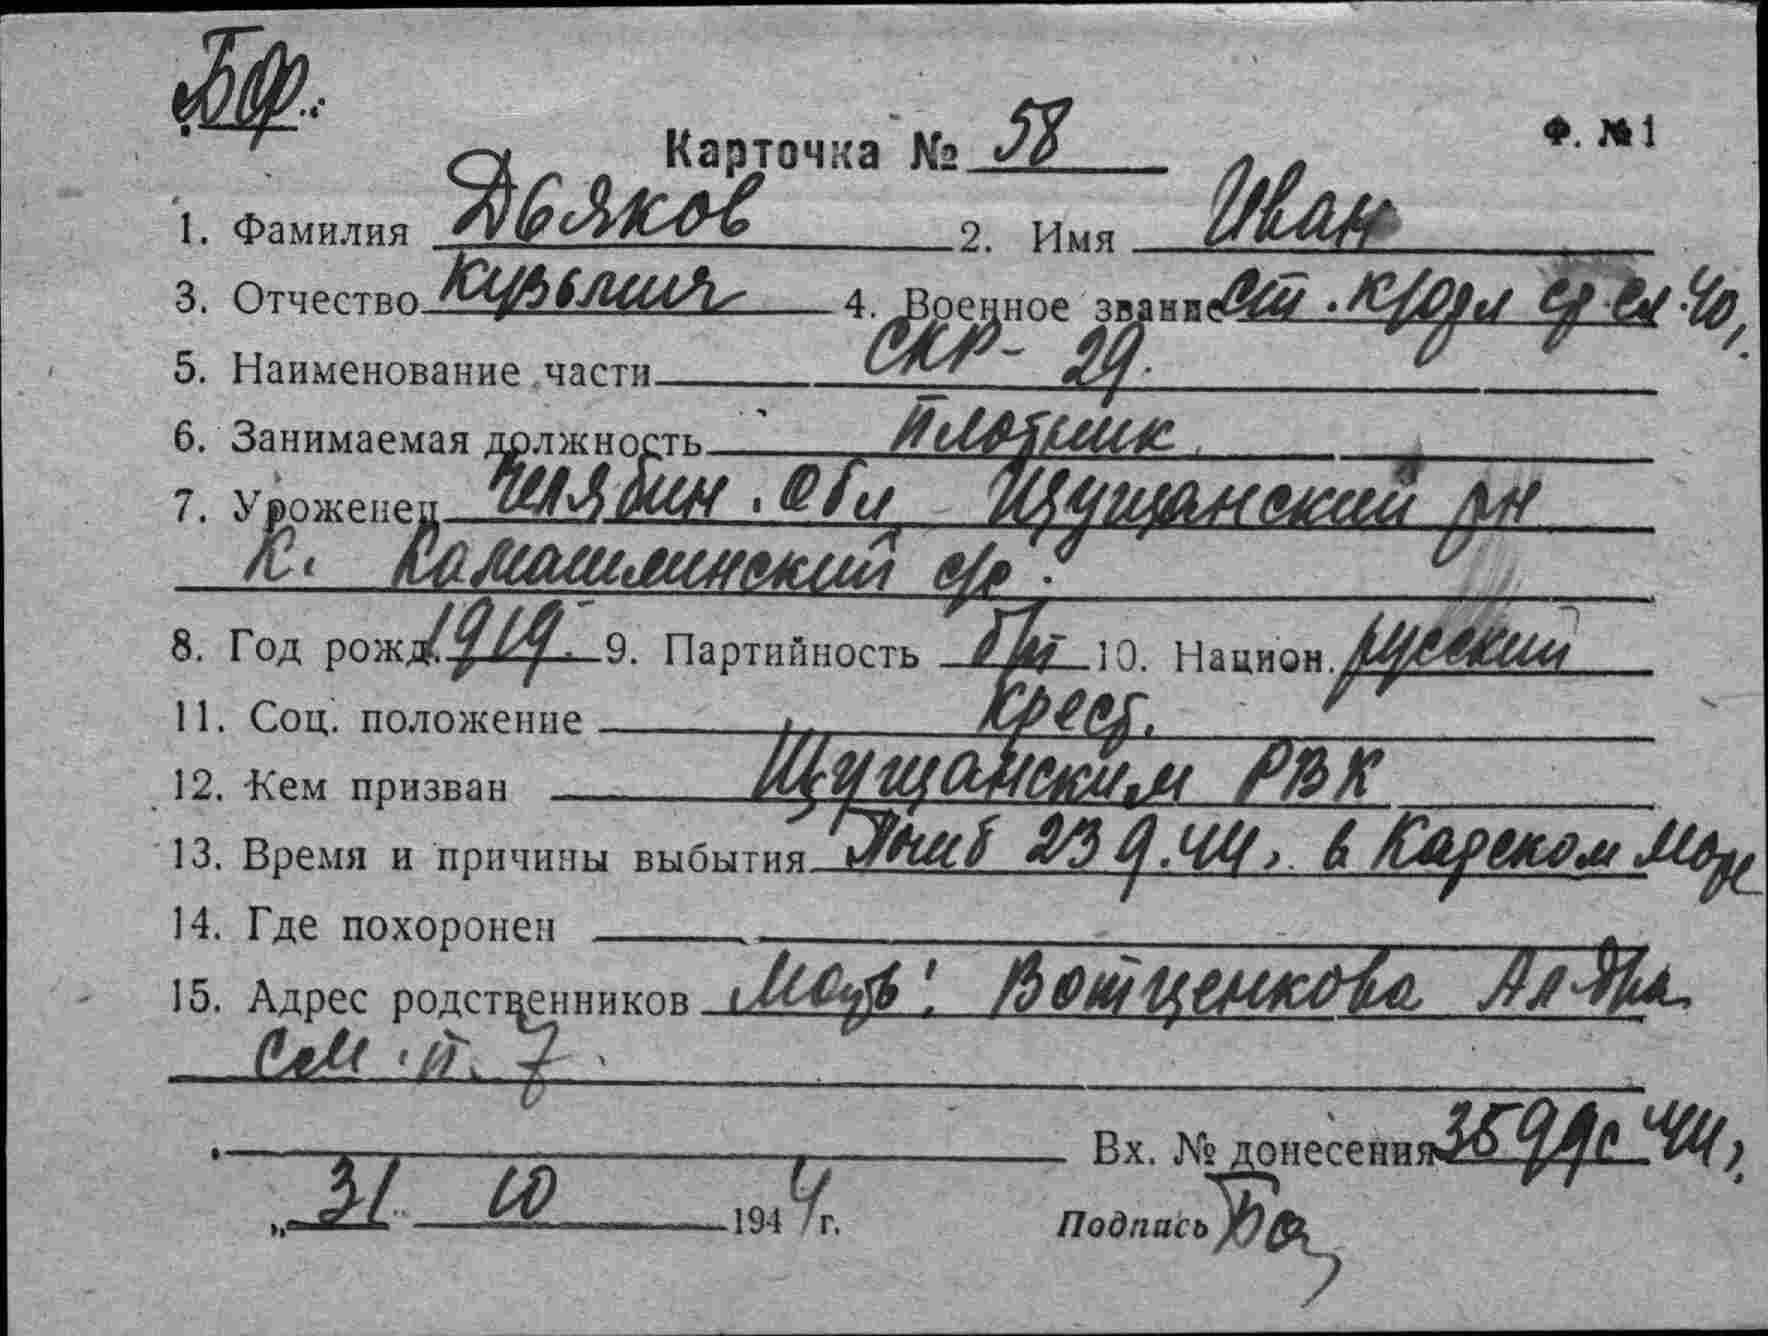 БФ.
Карточка № 58 Ф. №1
1. Фамилия Дьяков 2. Имя Иван
3. Отчество Кузьмич 4. Военное звание ст. кр/фл ср. сл. 40,
5. Наименование части СКР-29.
6. Занимаемая должность плотник
7. Уроженец Челябин. Обл Щущанский рн
К. Камашлинский с/с.
8. Год рожд. 1919. 9. Партийность б/п 10. Национ. русский
11. Соц. положение крест.
12. Кем призван Щущанским РВК
13. Время и причины выбытия Погиб 23 9.44, в Карском море
14. Где похоронен
15. Адрес родственников Мать: Вотщенкова Ал-дра
см. п. 7.
Вх. № донесения 359 44,
„31 10 1944 г. Подпись